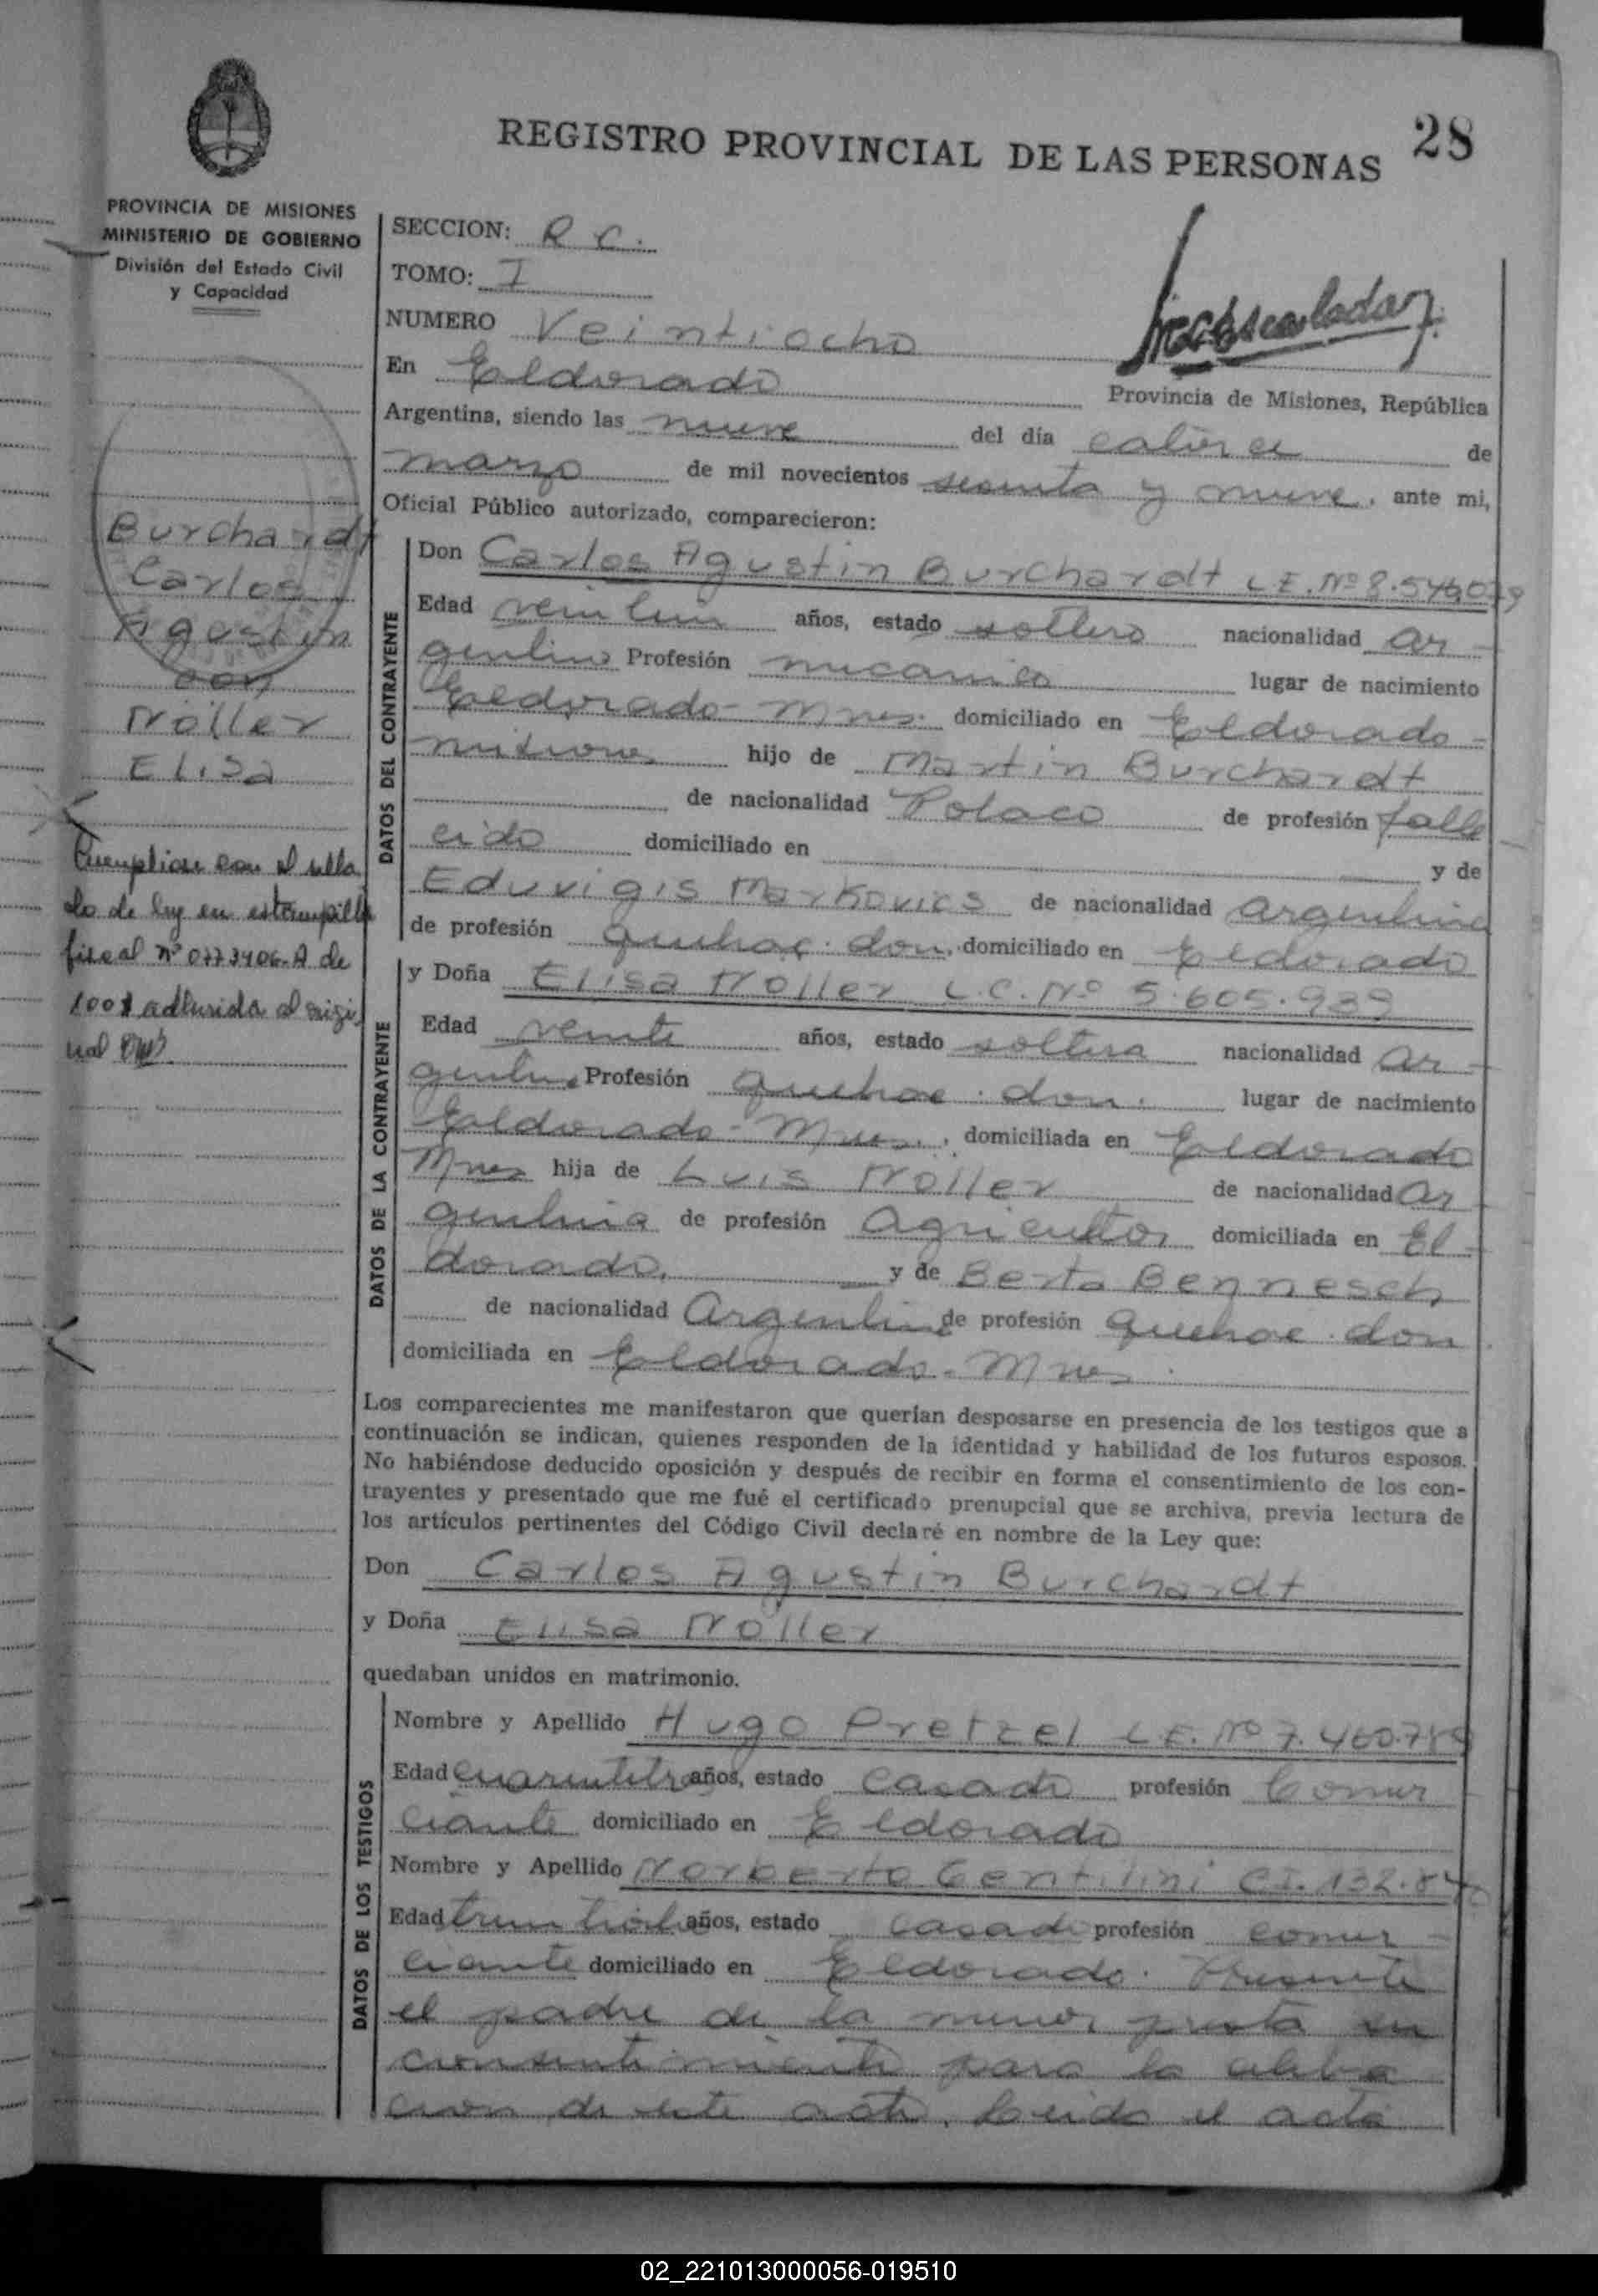 REGISTRO PROVINCIAL DE LAS PERSONAS 28
PROVINCIA DE MISIONES
MINISTERIO DE GOBIERNO
División del Estado Civil
y Capacidad
SECCION: R C.
TOMO: I
NUMERO Veintiocho
En Eldorado Provincia de Misiones, República
Argentina, siendo las nueve del día catorce de
marzo de mil novecientos sesenta y nueve, ante mi,
Oficial Público autorizado, comparecieron:
Burchardt
Carlos
Agustin
con
Nöller
Elisa
Cumplian con el sella
do de ley en estampilla
fiscal nº 0773406-A de
100$ adherida al origi
nal
DATOS DEL CONTRAYENTE
Don Carlos Agustin Burchardt L E. Nº 8.540.029
Edad veintiun años, estado soltero nacionalidad ar-
gentino Profesión mecanico lugar de nacimiento
Eldorado - Mnes. domiciliado en Eldorado -
misiones hijo de Martin Burchardt
de nacionalidad Polaco de profesión falle
cido domiciliado en y de
Eduvigis Markovics de nacionalidad argentina
de profesión quehac. dom, domiciliado en Eldorado
DATOS DE LA CONTRAYENTE
y Doña Elisa Nöller L.C. Nº 5.605.939
Edad veinte años, estado soltera nacionalidad ar-
gentina Profesión quehac. dom. lugar de nacimiento
Eldorado - Mnes., domiciliada en Eldorado
Mnes hija de Luis Nöller de nacionalidad ar
gentina de profesión agricultor domiciliada en El-
dorado, y de Berta Bennesch
de nacionalidad Argentina de profesión quehac. dom
domiciliada en Eldorado - Mnes.
Los comparecientes me manifestaron que querían desposarse en presencia de los testigos que a
continuación se indican, quienes responden de la identidad y habilidad de los futuros esposos.
No habiéndose deducido oposición y después de recibir en forma el consentimiento de los con-
trayentes y presentado que me fué el certificado prenupcial que se archiva, previa lectura de
los artículos pertinentes del Código Civil declaré en nombre de la Ley que:
Don Carlos Agustin Burchardt
y Doña Elisa Nöller
quedaban unidos en matrimonio.
DATOS DE LOS TESTIGOS
Nombre y Apellido Hugo Pretzel L E. Nº 7.460.789
Edad cuarentitres años, estado casado profesión Comer
ciante domiciliado en Eldorado
Nombre y Apellido Norberto Gentilini C.I. 132.840
Edad treintiocho años, estado casado profesión comer-
ciante domiciliado en Eldorado. Presente
el padre de la menor presta su
consentimiento para la celebra
cion de este acto. Leido el acta
02_221013000056-019510